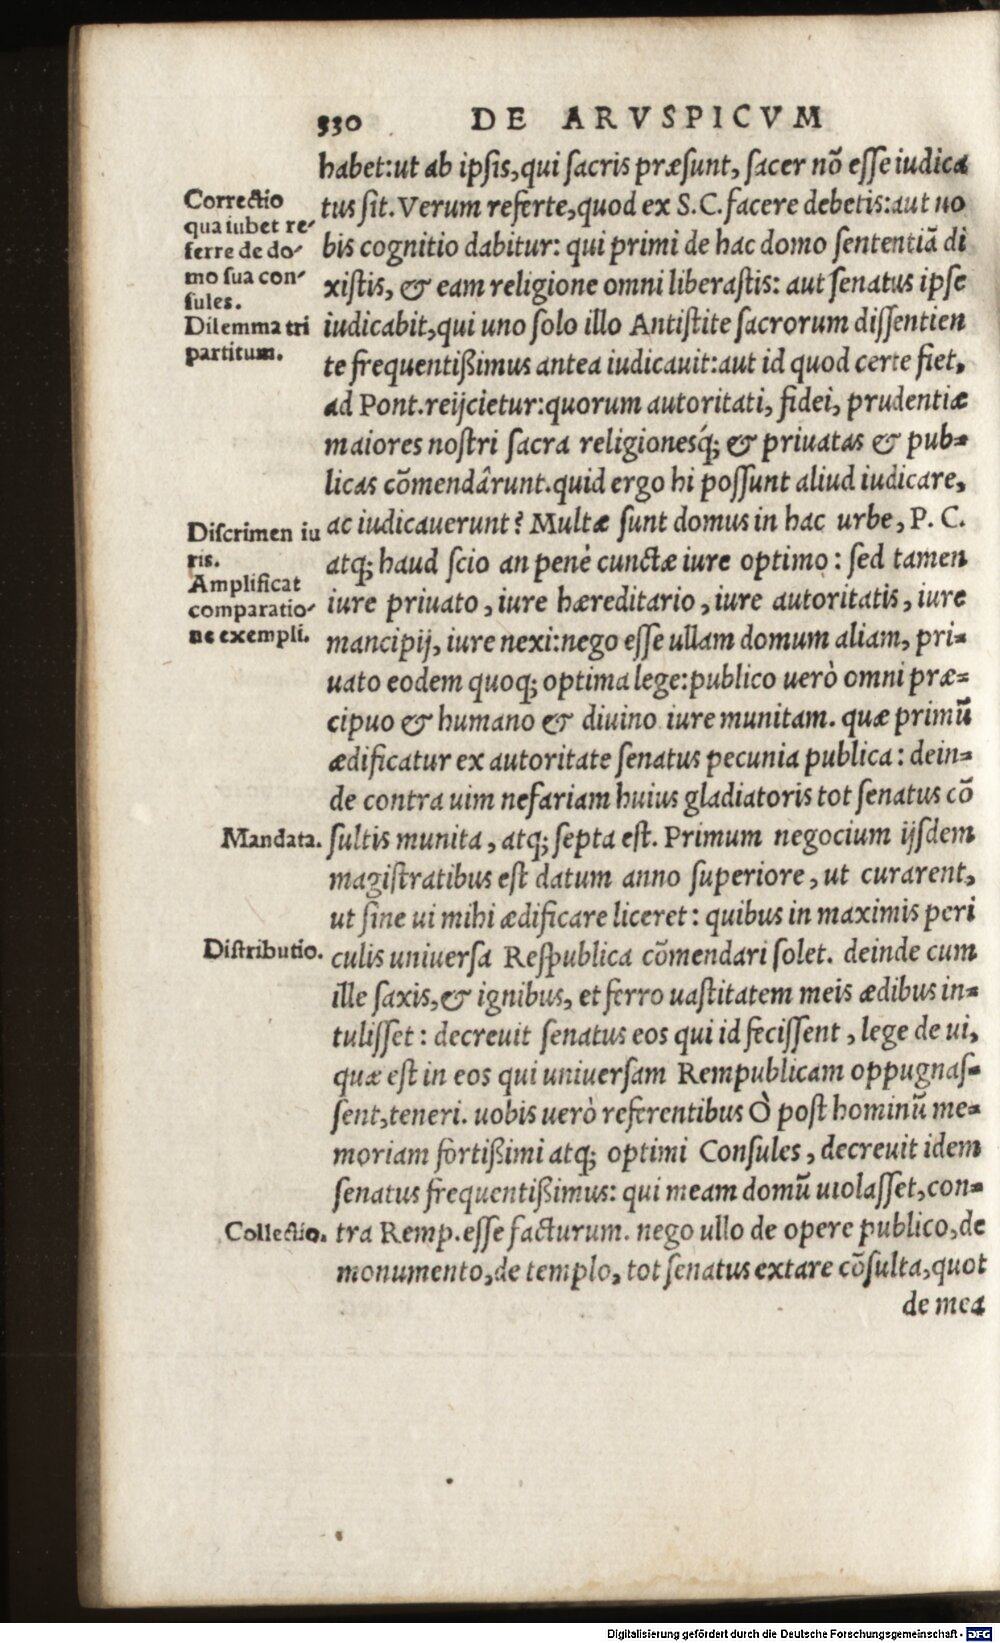 330 DE ARVSPICVM
habet:ut ab ipsis,qui sacris præsunt, sacer nõ esse iudica
tus sit. Verum referte,quod ex S.C.facere debetis:aut uo
bis cognitio dabitur: qui primi de hac domo sententiã di
xistis, & eam religione omni liberastis: aut senatus ipse
iudicabit,qui uno solo illo Antistite sacrorum dissentien
te frequentißimus antea iudicauit:aut id quod certe fiet,
ad Pont.reijcietur:quorum autoritati, fidei, prudentiæ
maiores nostri sacra religionesq́; & priuatas & pub-
licas cõmendârunt.quid ergo hi possunt aliud iudicare,
ac iudicauerunt? Multæ sunt domus in hac urbe, P. C.
atq; haud scio an penè cunctæ iure optimo: sed tamen
iure priuato, iure hæreditario, iure autoritatis, iure
mancipij, iure nexi:nego esse ullam domum aliam, pri-
uato eodem quoq; optima lege:publico uerò omni præ-
cipuo & humano & diuino iure munitam. quæ primũ
ædificatur ex autoritate senatus pecunia publica: dein-
de contra uim nefariam huius gladiatoris tot senatus cõ
sultis munita, atq; septa est. Primum negocium ijsdem
magistratibus est datum anno superiore, ut curarent,
ut sine ui mihi ædificare liceret: quibus in maximis peri
culis uniuersa Respublica cõmendari solet. deinde cum
ille saxis,& ignibus, et ferro uastitatem meis ædibus in-
tulisset: decreuit senatus eos qui id fecissent, lege de ui,
quæ est in eos qui uniuersam Rempublicam oppugnas-
sent,teneri. uobis uerò referentibus Ò post hominũ me-
moriam fortißimi atq; optimi Consules, decreuit idem
senatus frequentißimus: qui meam domũ uiolasset,con-
tra Remp.esse facturum. nego ullo de opere publico,de
monumento,de templo, tot senatus extare cõsulta,quot
de mea
Correctio
qua iubet re-
ferre de do-
mo sua con-
sules.
Dilemma tri
partitum.
Discrimen iu
ris.
Amplificat
comparatio-
ne exempli.
Mandata.
Distributio.
Collectio.
Digitalisierung gefördert durch die Deutsche Forschungsgemeinschaft - DFG